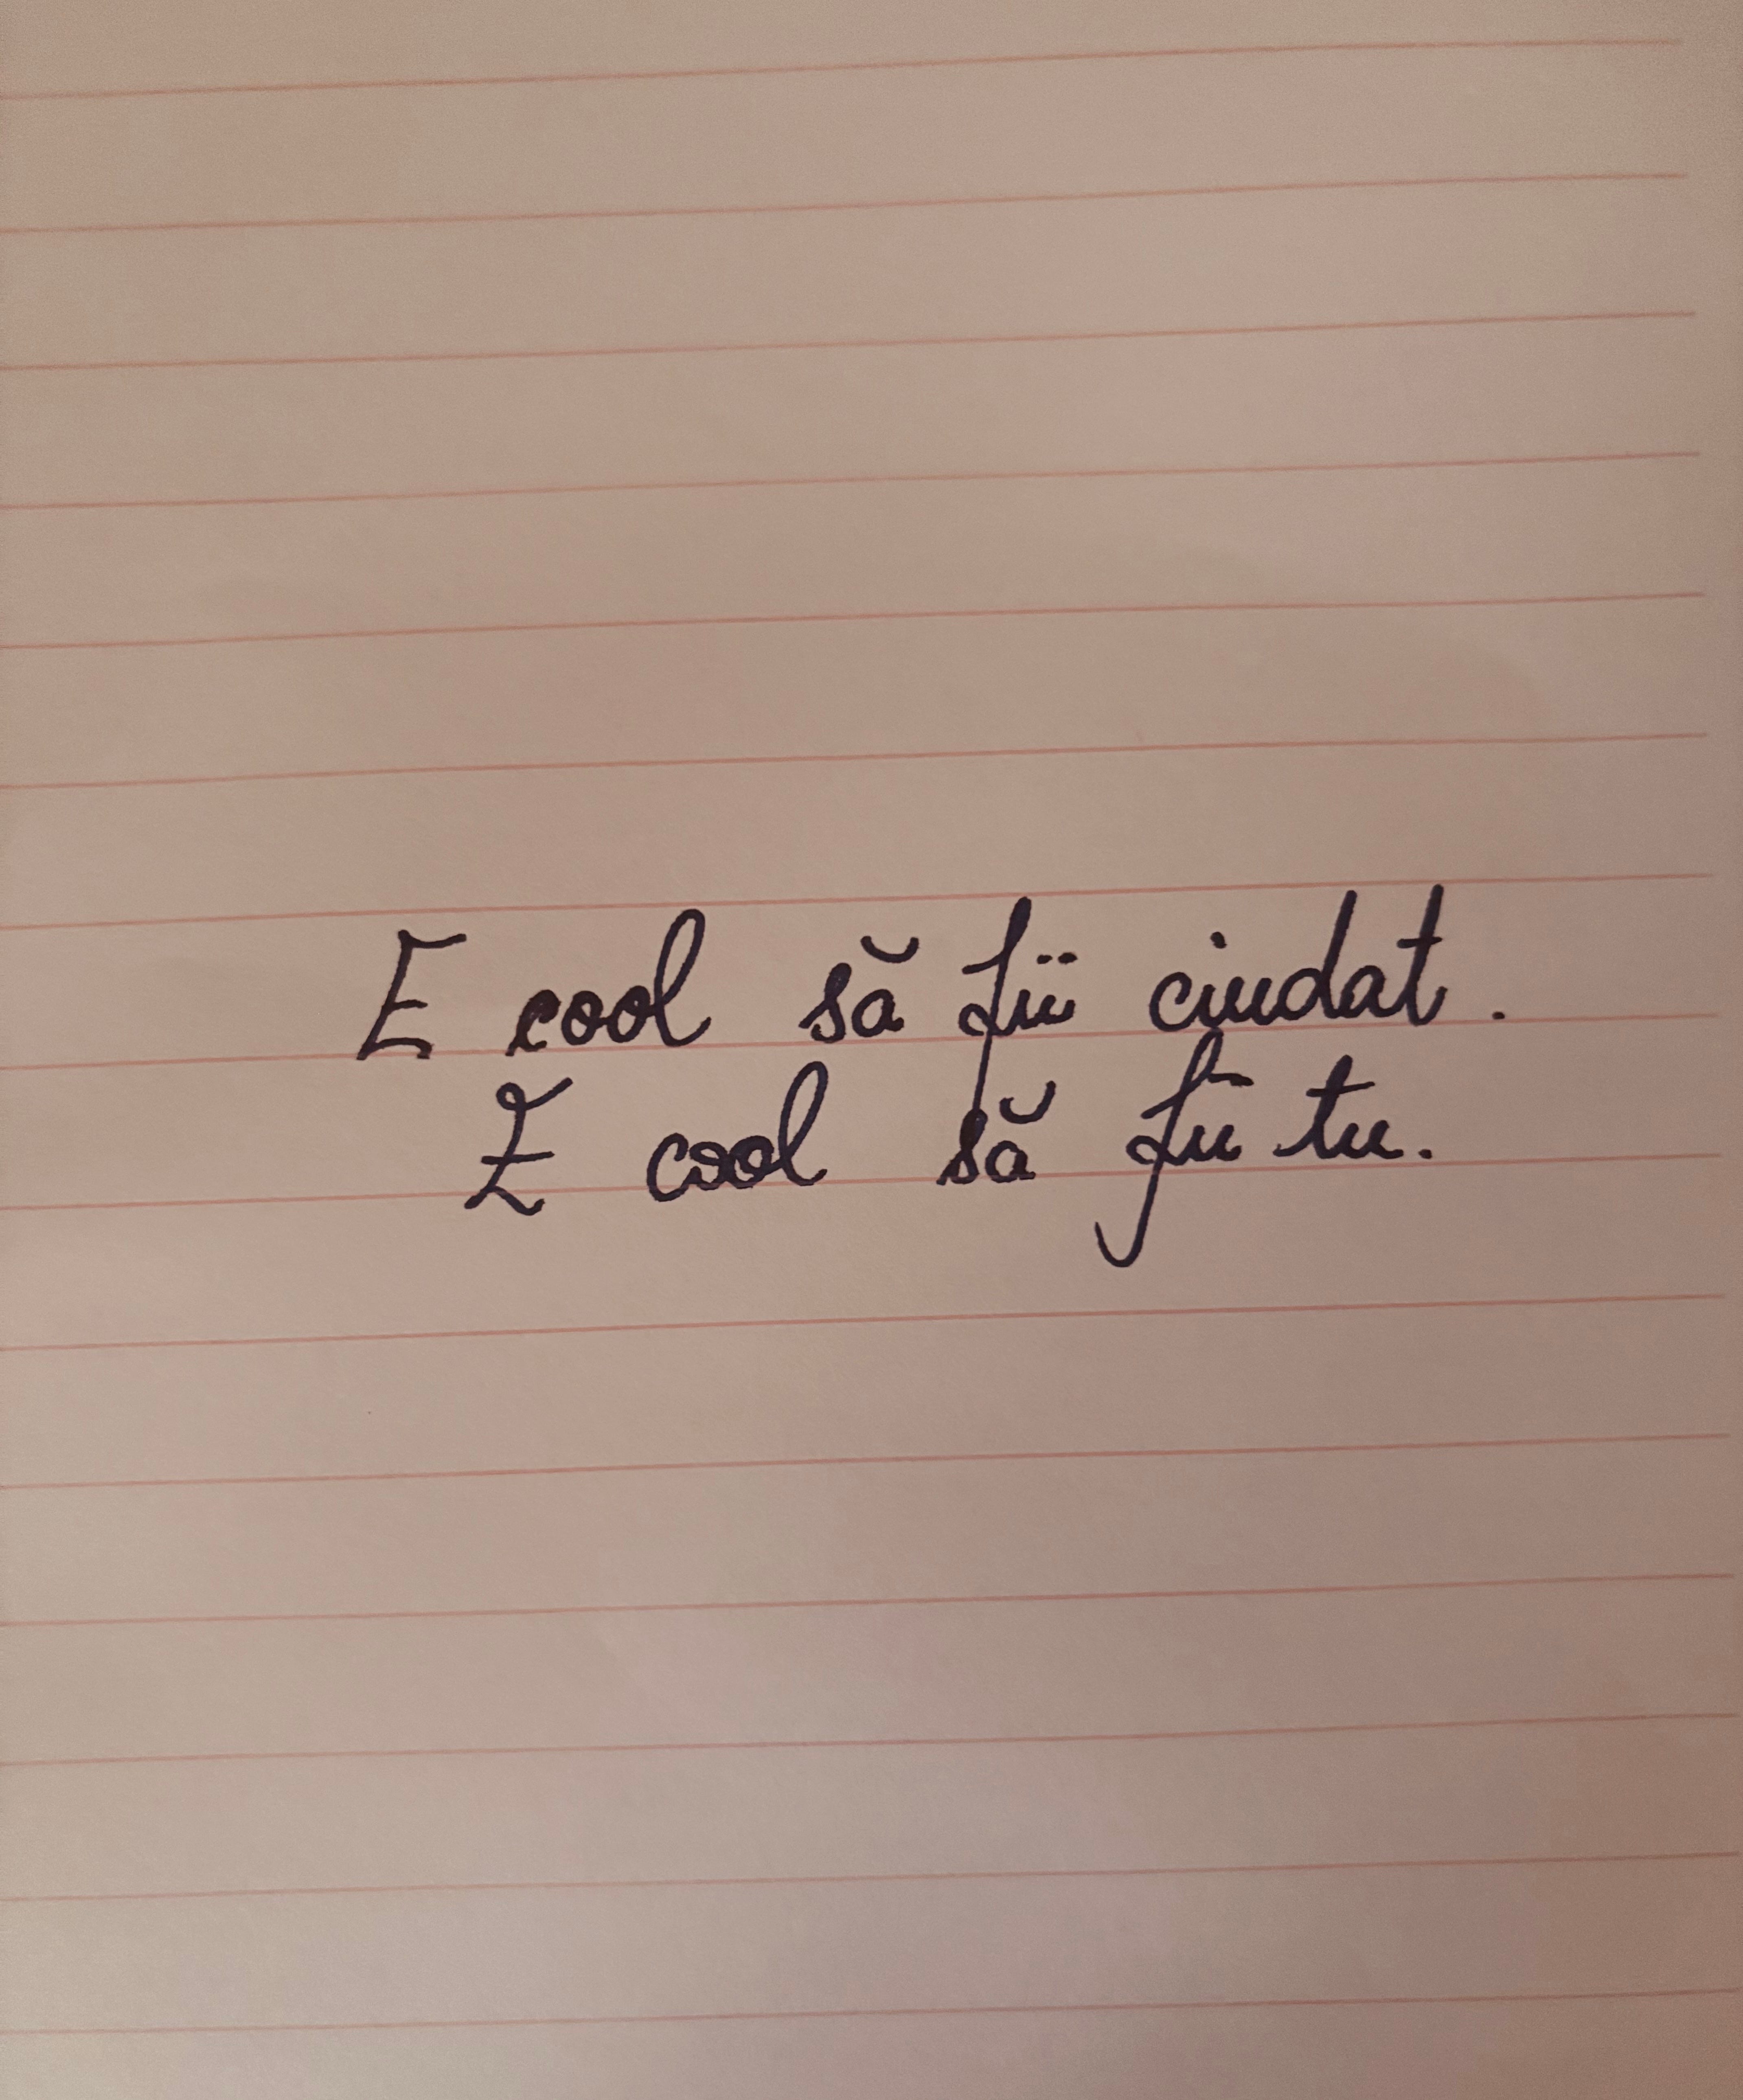 E cool să fii ciudat.
E cool să fii tu.